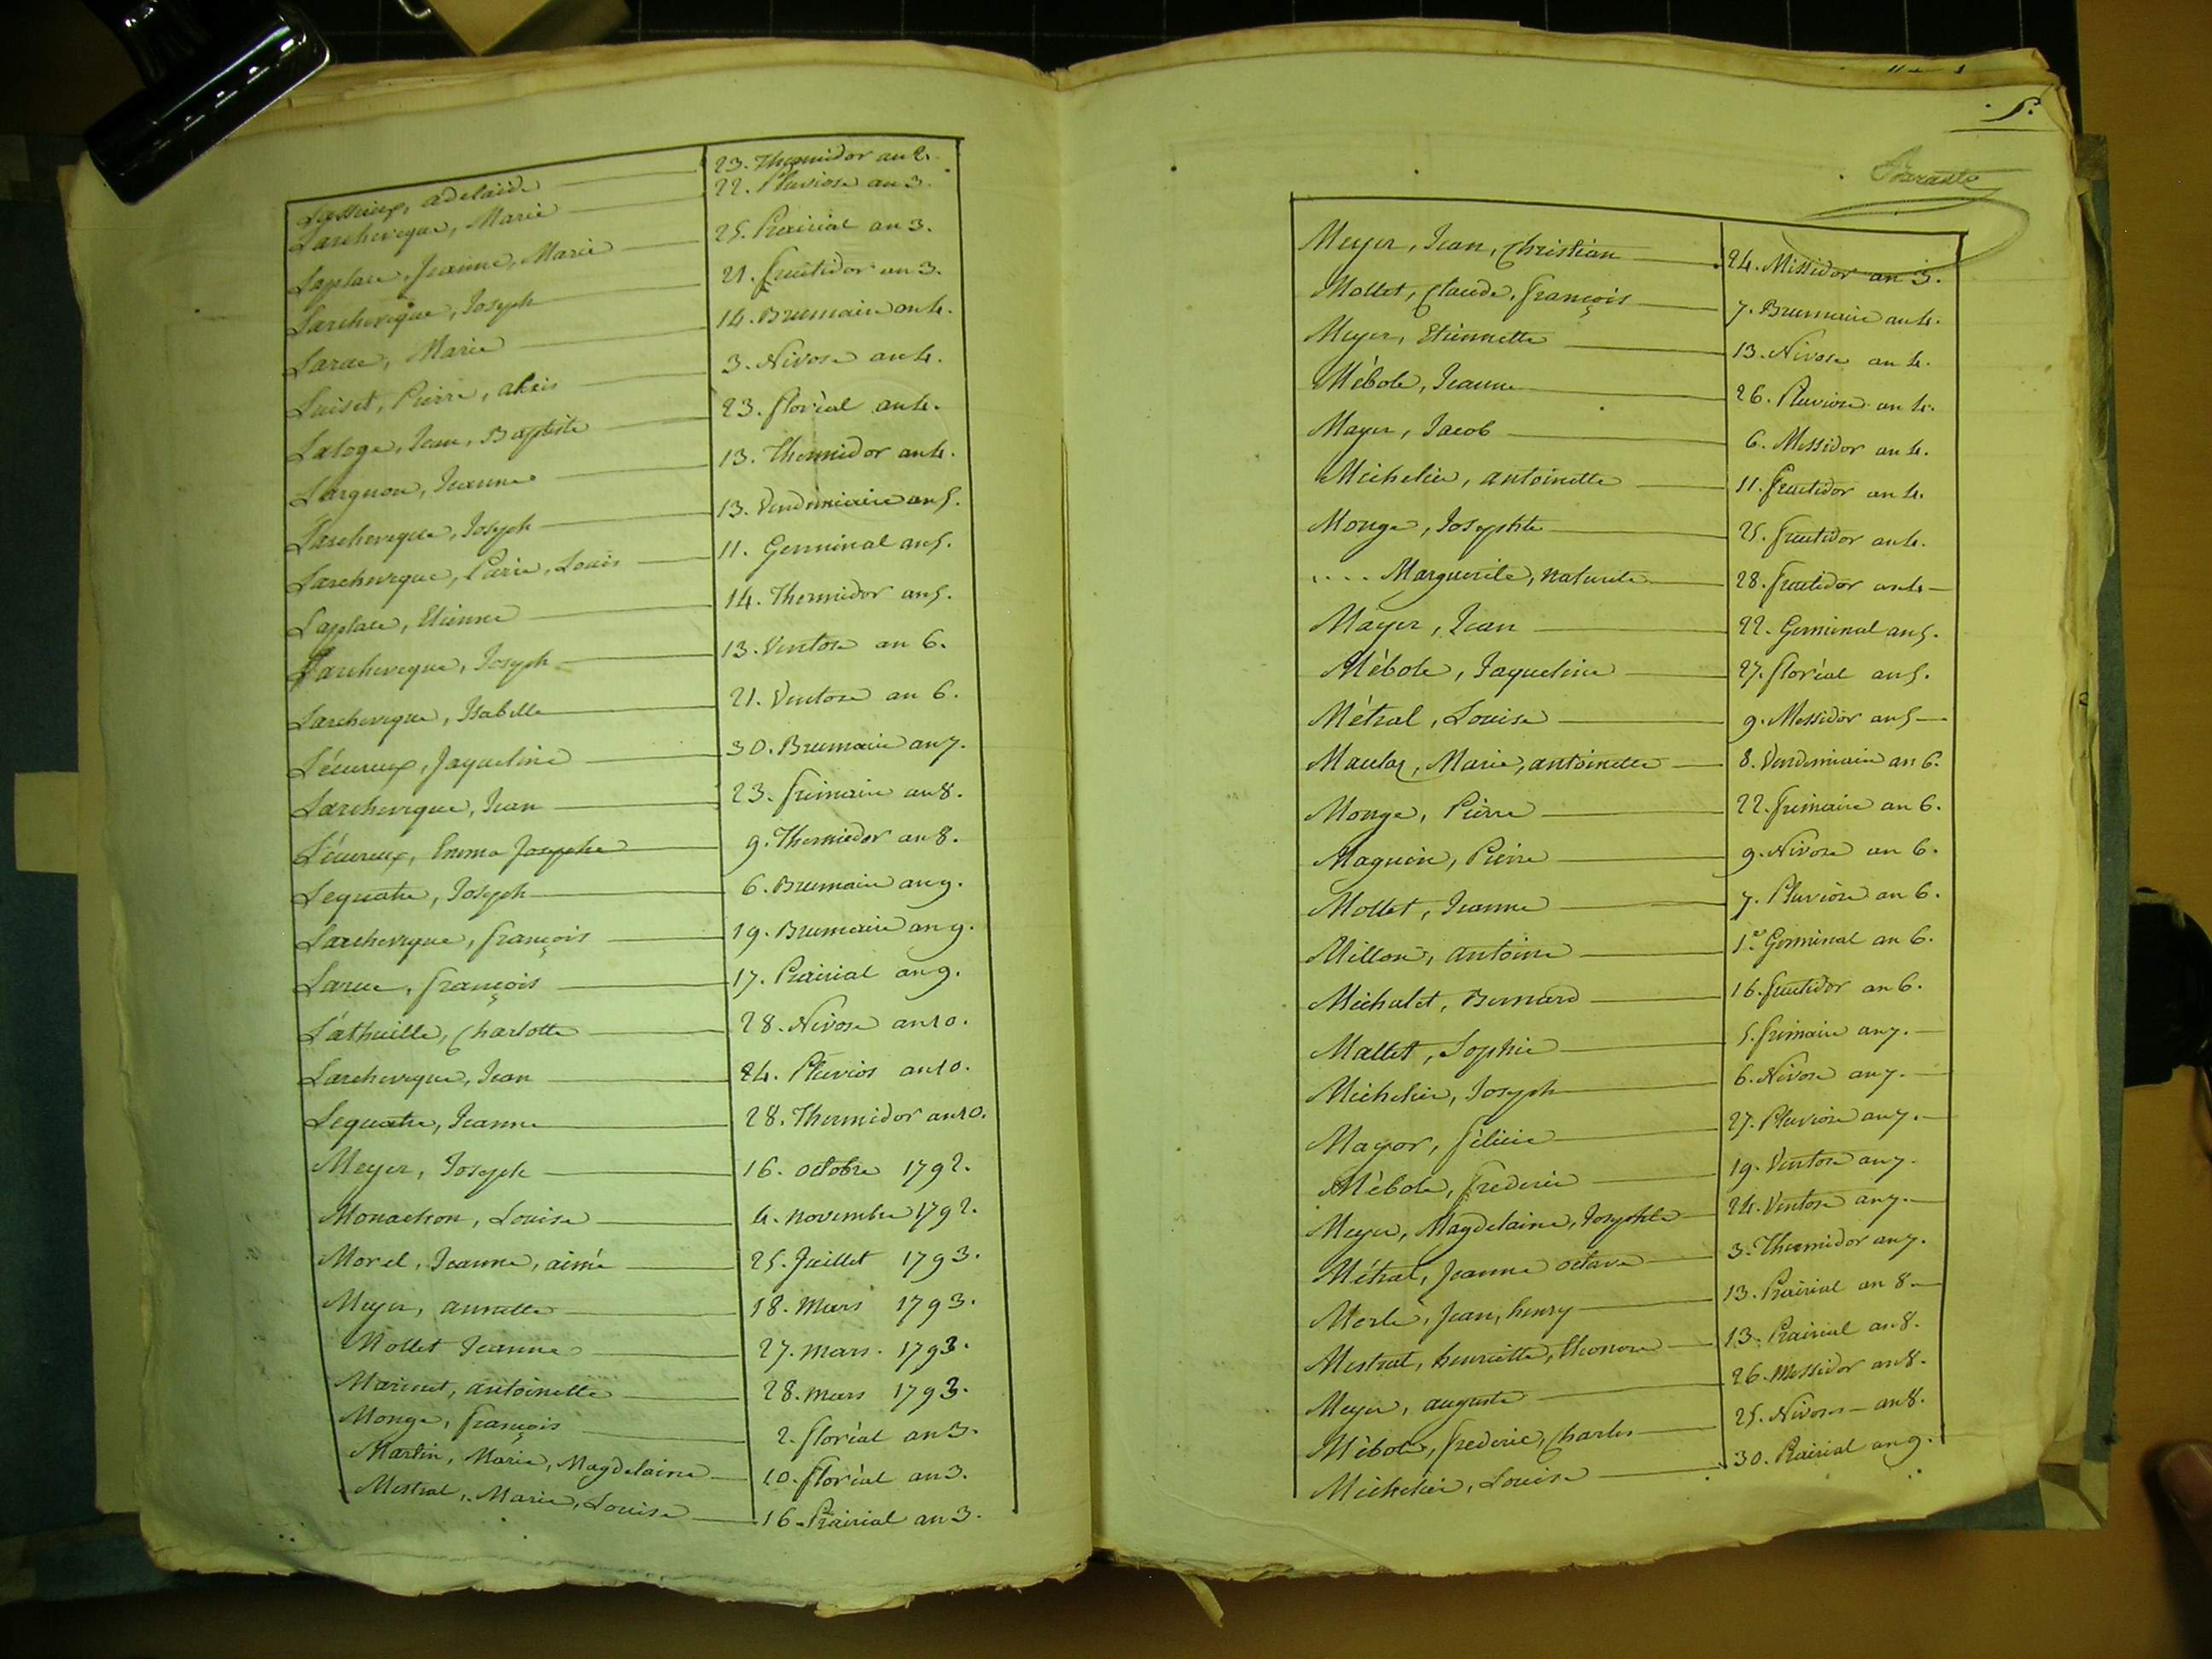 adelaide 23. Thermidor an 2.
Larcheveque, Marie 22. Pluviose an 3.
Laplace, Jeanne, Marie 25. Prairial an 3.
Larcheveque, Joseph 21. fructidor an 3.
Larue, Marie 14. Brumaire an 4.
Luiset, Pierre, alexis 3. Nivose an 4.
Laloge, Jean, Baptiste 23. floréal an 4.
Jeanne 13. Thermidor an 4.
Larcheveque, Joseph 13. Vendemiaire an 5.
Larcheveque, Pierre, Louis 11. Germinal an 5.
Laplace, Etienne 14. Thermidor an 5.
Larcheveque, Joseph 13. Ventose an 6.
Larcheveque, Isabelle 21. Ventose an 6.
Lécureux, Jaqueline 30. Brumaire an 7.
Larcheveque, Jean 23. frimaire an 8.
Lécureux, Emma Josephe 9. Thermidor an 8.
Lequatre, Joseph 6. Brumaire an 9.
Larcheveque, françois 19. Brumaire an 9.
Larue, françois 17. Prairial an 9.
Lathuille, Charlotte 28. Nivose an 10.
Larcheveque, Jean 24. Pluvios an 10.
Lequatre, Jeanne 28. Thermidor an 10.
Meyer, Joseph 16. octobre 1792.
Monachon, Louise 4. novembre 1792.
Morel, Jeanne, aimé 25. Juillet 1793.
Meyer, annette 18. Mars 1793.
Mollet Jeanne 27. mars. 1793.
antoinette 28. mars 1793.
Monge, françois 2. floréal an 3.
Martin, Marie, Magdelaine 10. floréal an 3.
Mestral, Marie, Louise 16. Prairial an 3.
5.
Meyer, Jean, Christian 24. Messidor an 3.
Mollet, Claude, françois 7. Brumaire an 4.
Meyer, Etiennette 13. Nivose an 4.
Mébole, Jeanne 26. Pluviose an 4.
Mayer, Jacob 6. Messidor an 4.
Michelin, antoinette 11. fructidor an 4.
Monge, Josephte 25. fructidor an 4.
.... Marguerite, naturele 28. fructidor an 4
Mayer, Jean 22. Germinal an 5.
Mébole, Jaqueline 27. floréal an 5.
Métral, Louise 9. Messidor an 5
Maulaz, Marie, antoinette 8. Vendemiaire an 6.
Monge, Pierre 22. frimaire an 6.
Magnin, Pierre 9. Nivose an 6.
Mollet, Jeanne 7. Pluviose an 6.
Millon, antoine 1.er Germinal an 6.
Michalet, Bernard 16. fructidor an 6.
Mallet, Sophie 5. frimaire an 7.
Michelin, Joseph 6. Nivose an 7.
Mayor, félicie 27. Pluviose an 7.
Mébole, frederic 19. Ventose an 7.
Meyer, Magdelaine, Josephte 24. Ventose an 7.
Métral, Jeanne octave 3. Thermidor an 7.
Merle, Jean, henry 13. Prairial an 8.
Mestral, henriette, Eleonore 13. Prairial an 8.
Meyer, auguste 26. Messidor an 8.
Mébole, frederic, Charles 25. Nivose an 8.
Michelin, Louise 30. Prairial an 9.